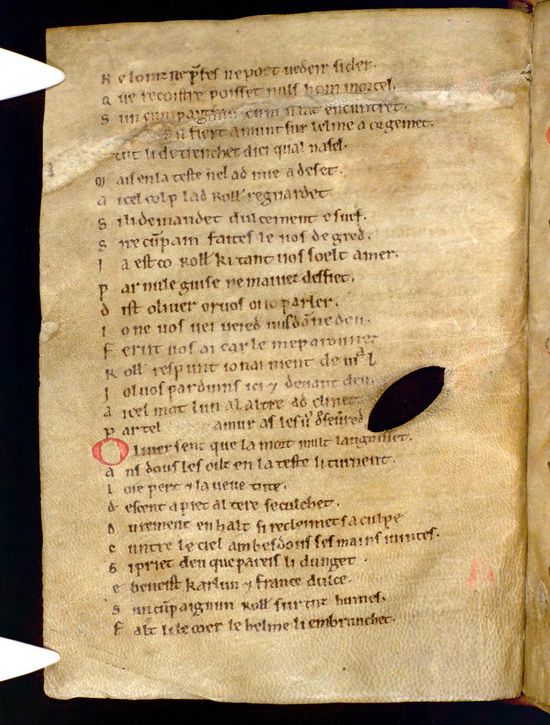 N e loinz ne p̃res ne poet uedeir si cler.
Q ue reconistre poisset nuls hom mortel.
S un cumpaignun cum il lat encuntret.
Sil fiert amunt sur lelme a or gemet.
tut li detrenchet dici qual nasel.
M ais en la teste nel ad mie adeset.
A icel colp lad Roll̃ reguardet
S i li demandet dulcement e suef.
S ire cũpain faites le uos de gred.
J a est co Roll̃ ki tant uos soelt amer.
P ar nule guise ne mauiez desfiet.
D ist oliuer or uos oi io parler.
I o ne uos uei ueied uus dãnedeu.
F erut uos ai car le me pardunez
R oll̃ respunt io nai nient de mel
I ol uos parduins ici ⁊ deuant deu.
A icel mot lun al altre ad clinet.
P ar tel amur as les uus deseured
O liuer sent que la mort mult langoisset.
A ns dous les oilz en la teste li turnent.
L oie pert ⁊ la ueue tute.
D escent a piet al tere se culchet.
D urement en halt si recleimet sa culpe
C untre le ciel ambesdous ses mains iuintes.
S i priet deu que pareis li dunget
E beneist karlun ⁊ france dulce.
S un cũpaignun Roll̃ sur tuz humes.
F alt li le coer le helme li embrunchet.